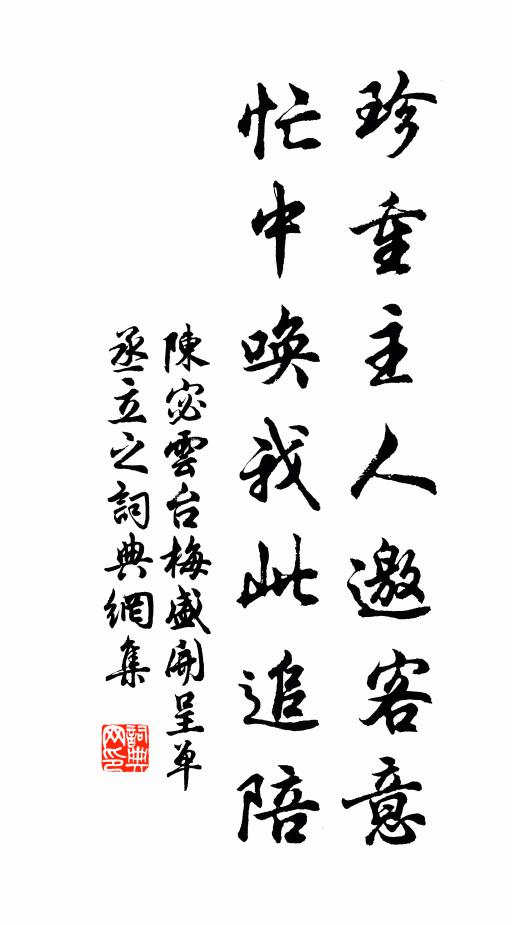 珍重主人邀客意
忙中喚我此追陪
陳宓雲台梅盛開呈单
丞立之詞典網集
詞典
网印